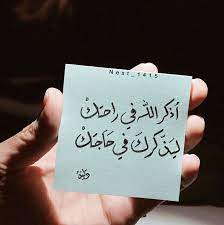 Next_1415
أذكر الله في راحتكْ
ليذكركَ في حَاجتكْ